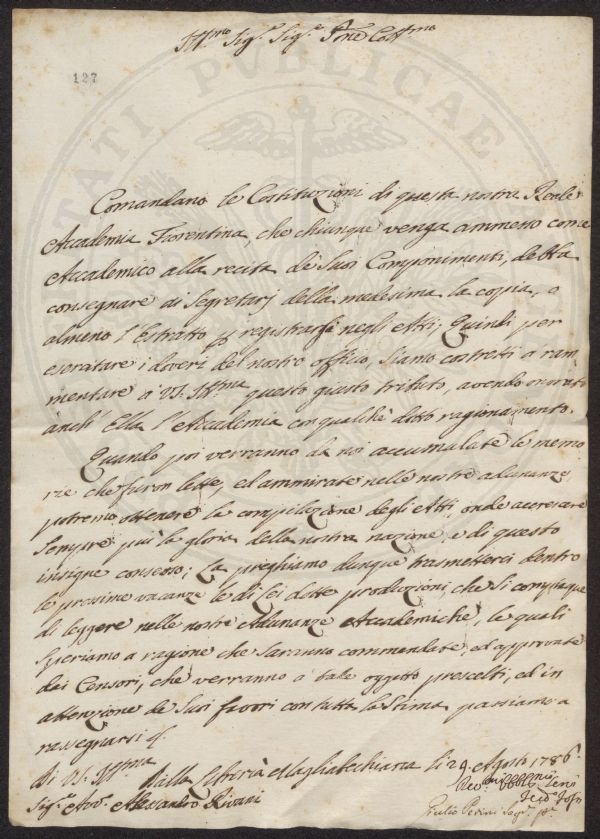 Ill.mo Sig.r Sig.r P.ne Coll.mo
127
Comandano le Costituzioni di questa nostra Reale
Accademia Fiorentina, che chiunque venga ammesso come
Accademico alla recita de Suoi Componimenti, debba
consegnare ai Segretarj della medesima la copia, o
almeno l'Estratto p registrarsi negli Atti; Quindi per
esercitare i doveri del nostro offizio, siamo costretti a ram
mentare a VS. Ill.ma questo giusto tributo, avendo onorato
anch'Ella l'Accademia con qualche dotto ragionamento.
Quando poi verranno da noi accumulate le memo
rie che furon lette, ed ammirate nelle nostre adunanze
potremo ottenere la compilazione degli Atti, onde accrescere
sempre più la gloria della nostra nazione, e di questo
insigne consesso; La preghiamo dunque trasmetterci dentro
le prossime vacanze le di Lei dotte produzioni, che si compiacque
di leggere nelle nostre Adunanze Accademiche, le quali
speriamo a ragione che saranno commendate, ed approvate
dai Censori, che verranno a tale oggetto prescelti, ed in
attenzione de Suoi favori con tutta la Stima passiamo a
rassegnarsi
Di VS. Ill.ma
Dalla Libreria Magliabechiana li 29. Agosto 1786.
Sig.r Avv. Alessandro Rivani
Giulio Perini Seg.
STATI PUBLICAE